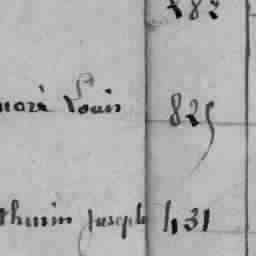 182
noré Louis 825
thurin Joseph 431